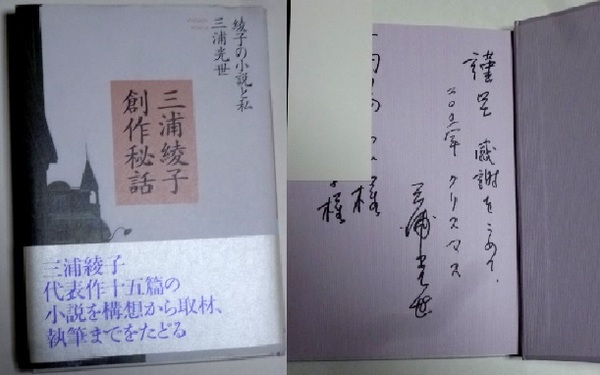 綾子の小説と私
三浦光世
三浦綾子
創作秘話
三浦綾子
代表作十五篇の
小説を構想から取材、
執筆までをたどる
謹呈 感謝をこめて、
クリスマス
三浦光世
様
様